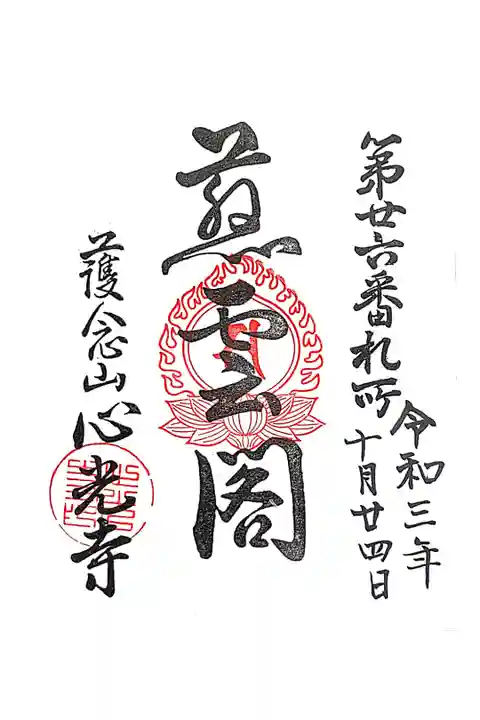 第廿六番札所
令和三年
十月廿四日
慈雲閣
護念山心光寺